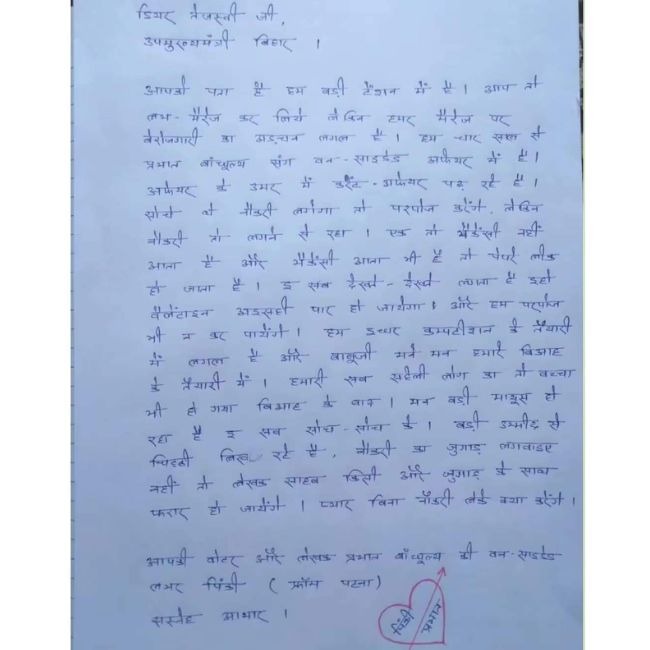 डियर तेजस्वी जी,
उपमुख्यमंत्री बिहार ।
आपको पता है हम बड़ी टेंशन में है । आप तो
लभ-मैरेज कर लिये लेकिन हमर मैरेज पर
बेरोजगारी का अड़चन लगल है । हम चार साल से
प्रभात बांधुल्य संग वन-साइडेड अफेयर में है ।
अफेयर के उमर में करेंट-अफेयर पढ़ रहे है ।
सोचे थे नौकरी लगेगा तो परपोज करेंगे, लेकिन
नौकरी तो लगने से रहा । एक तो भैकेंसी नहीं
आता है और भैकेंसी आता भी है तो पेपरे लीक
हो जाता है । इ सब देखते-देखते लगता है इहो
वैलेंटाइन अइसही पार हो जायेगा । और हम परपोज
भी न कर पायेंगे । हम इधर कम्पटीशन के तैयारी
में लगल है और बाबूजी मने मन हमारे बिआह
के तैयारी में । हमारी सब सहेली लोग का तो बच्चा
भी हो गया बिआह के बाद । मन बड़ी मायूस हो
रहा है इ सब सोच-सोच के । बड़ी उम्मीद से
चिट्ठी लिख रहे है, नौकरी का जुगाड़ लगवाइए
नहीं तो लेखक साहब किसी और जुगाड़ के साथ
फरार हो जायेंगे । प्यार बिना नौकरी लेके क्या करेंगे ।
आपकी वोटर और लेखक प्रभात बांधुल्य की वन-साइडेड
लभर पिंकी ( फ्रॉम पटना )
सस्नेह आभार ।
पिंकी
प्रभात